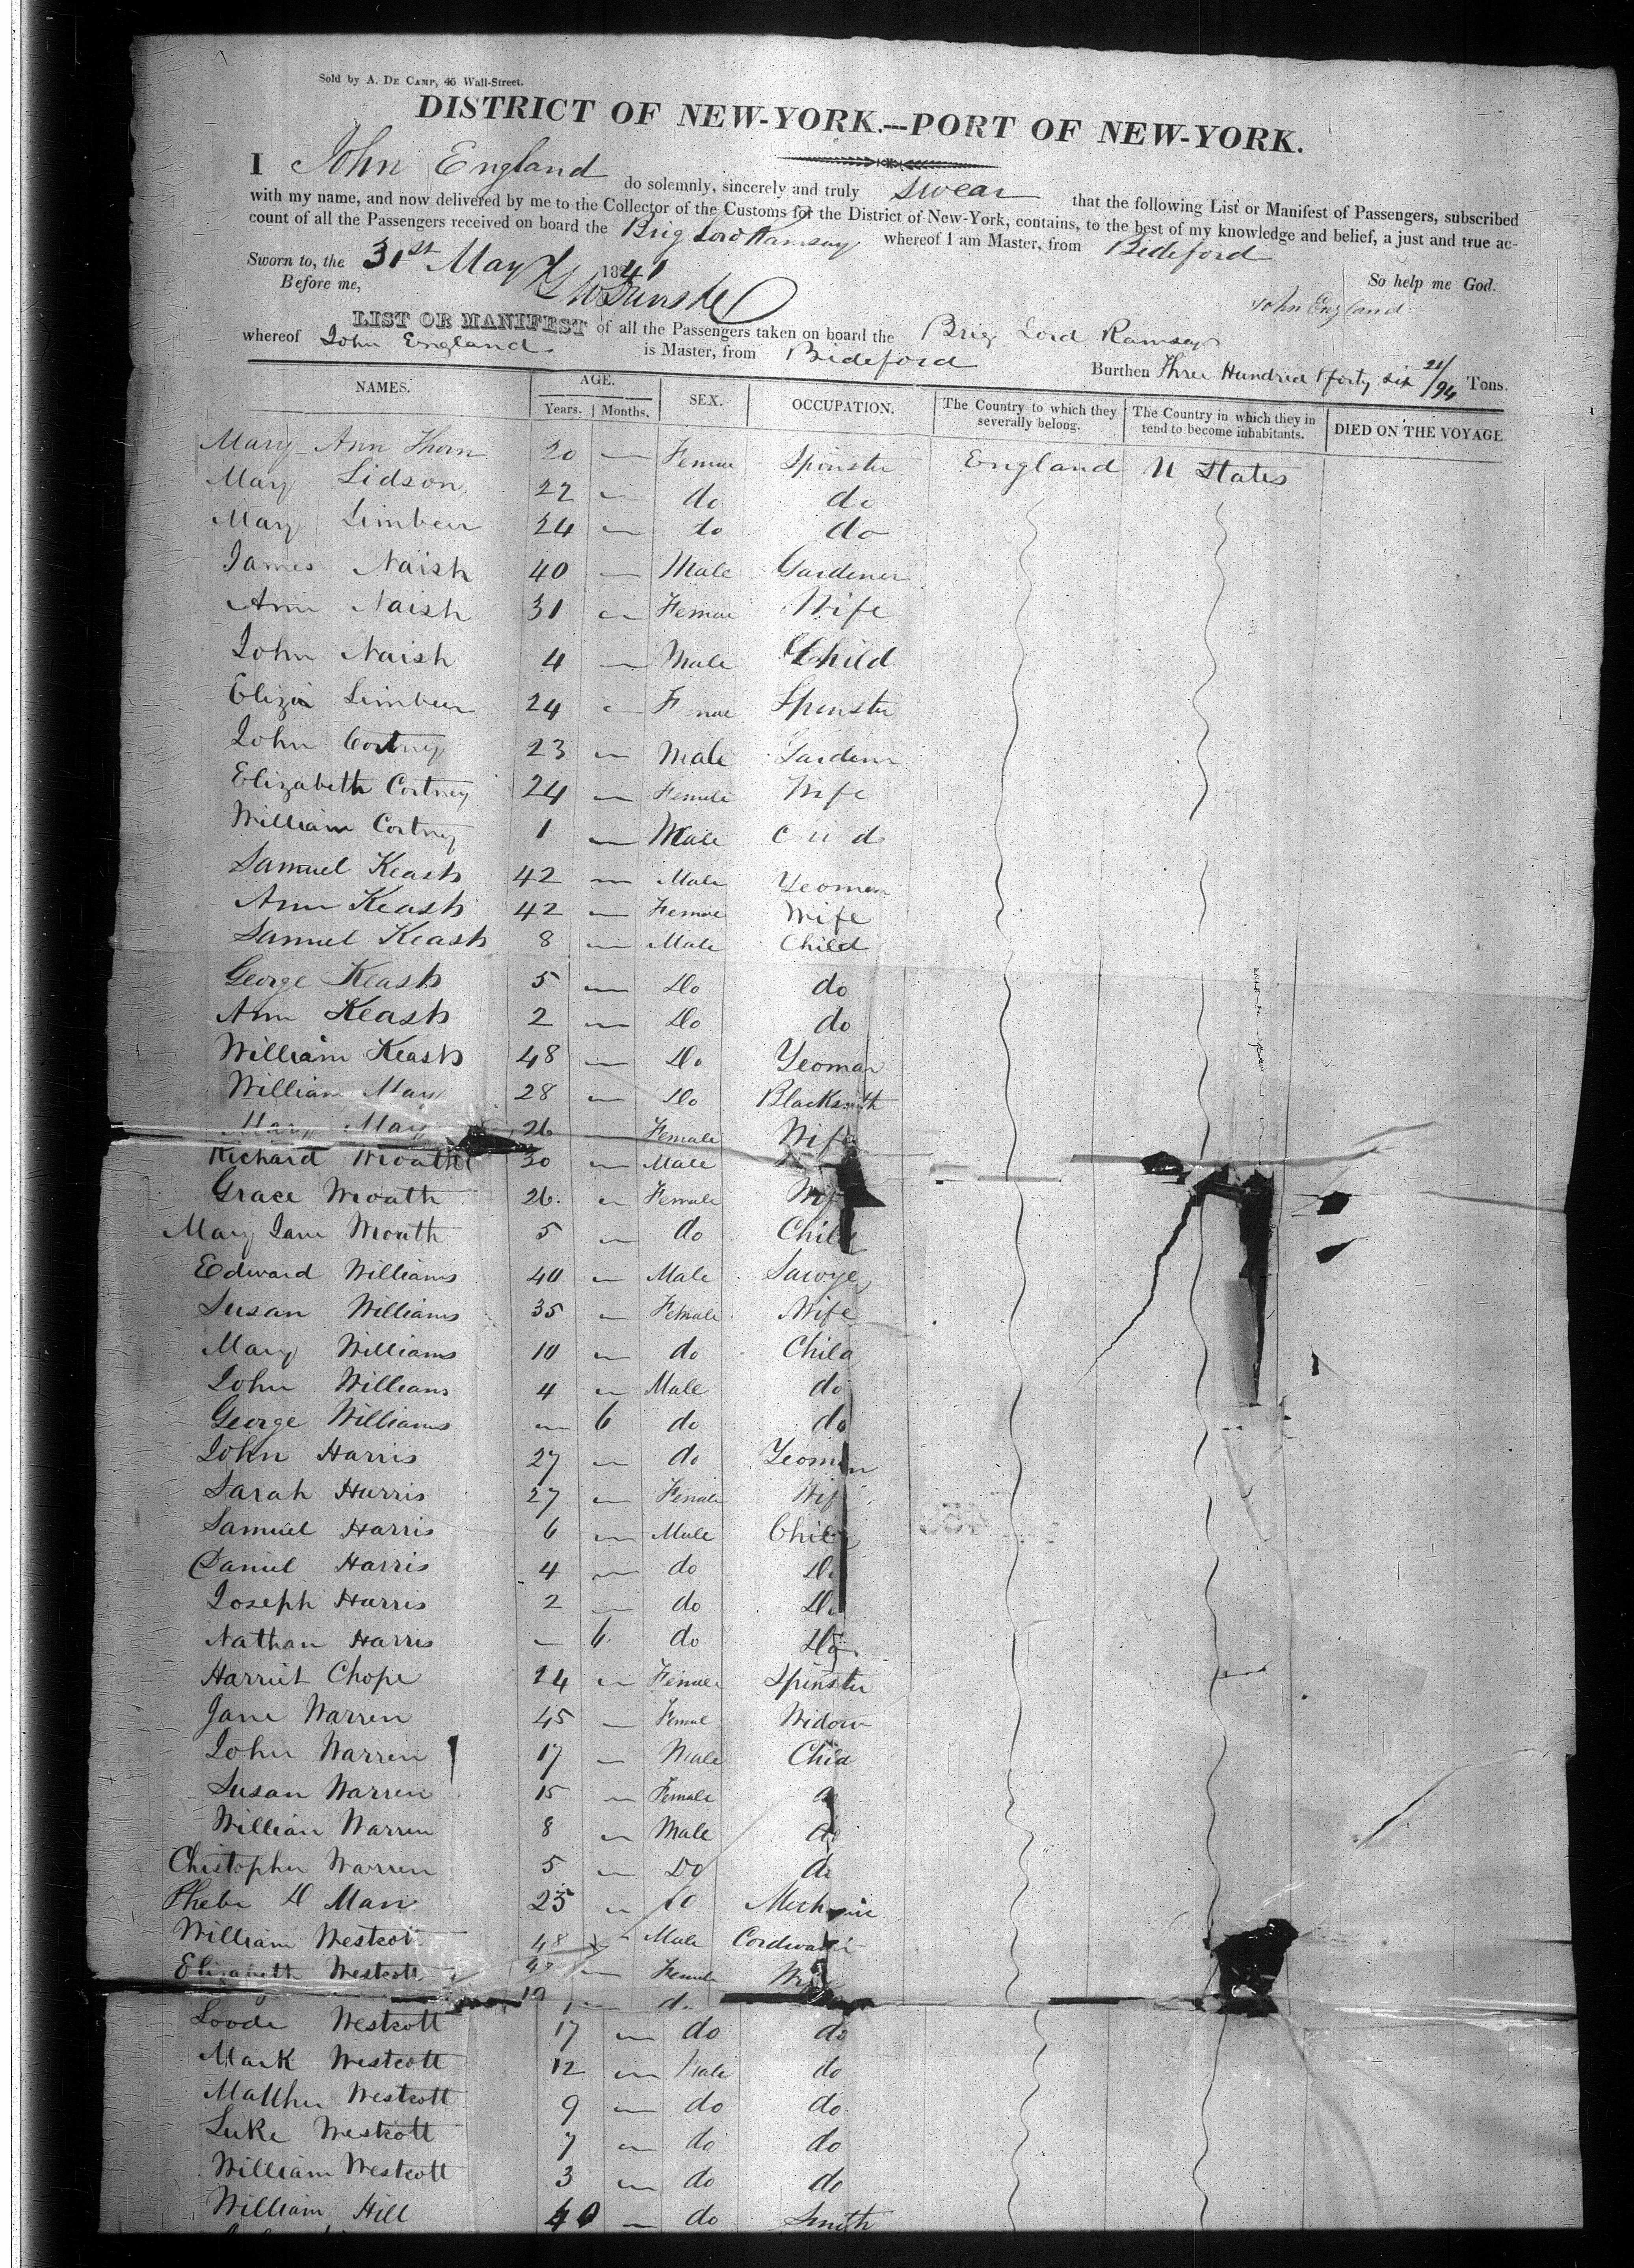 Sold by A. DE CAMP, 45 Wall-Street.
DISTRICT OF NEW-YORK.---PORT OF NEW-YORK.
I John England do solemnly, sincerely and truly swear that the following List or Manifest of Passengers, subscribed
with my name, and now delivered by me to the Collector of the Customs for the District of New-York, contains, to the best of my knowledge and belief, a just and true ac-
count of all the Passengers received on board the Brig Lord Ramsay whereof I am Master, from Bideford
Sworn to, the 31st May 1841 So help me God.
Before me, John England
LIST OR MANIFEST of all the Passengers taken on board the Brig Lord Ramsay
whereof John England is Master, from Bideford Burthen Three Hundred & forty six 21/94 Tons.
NAMES. AGE. SEX. OCCUPATION. The Country to which they severally belong. The Country in which they in tend to become inhabitants. DIED ON THE VOYAGE
Years. Months.
Mary Ann Thorn 20 — Female Spinster England U States
Mary Lidson 22 — do do
Mary Limbeer 24 — do do
James Naish 40 — Male Gardener
Ann Naish 31 — Female Wife
John Naish 4 — Male Child
Eliza Limbeer 24 — Spinster
John Cortney 23 — Male Gardener
Elizabeth Cortney 24 — Female Wife
William Cortney 1 — Male
Samuel Keash 42 — Male Yeoman
Ann Keash 42 — Female Wife
Samuel Keash 8 — Male Child
George Keash 5 — Do do
Ann Keash 2 — Do do
William Keash 48 — Do Yeoman
William May 28 — Do Blacksmith
Mary May 26 — Female Wife
Richard Moath 30 — Male
Grace Moath 26 — Female Wife
Mary Jane Moath 5 — do Child
Edward Williams 40 — Male Sawyer
Susan Williams 35 — Female Wife
Mary Williams 10 — do Child
John Williams 4 — Male do
George Williams — 6 do do
John Harris 27 — do Yeoman
Sarah Harris 27 — Female Wife
Samuel Harris 6 — Male Child
Daniel Harris 4 — do Do
Joseph Harris 2 — do Do
Nathan Harris — 6 do Do
Harriet Chope 24 — Female Spinster
Jane Warren 45 — Female Widow
John Warren 17 — Male Child
Susan Warren 15 — Female
William Warren 8 — Male do
Chistopher Warren 5 — Do do
Phebe D Man 25 — do
William Westcot 48 — Male
Elizabeth Westcott — Female Wife
19 —
Westcott 17 — do do
Mark Westcott 12 — Male do
Matthew Westcott 9 — do do
Luke Westcott 7 — do do
William Westcott 3 — do do
William Hill 40 — do Smith